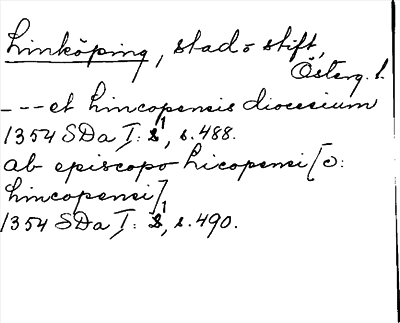 Linköping, stad o stift,
Österg. l.
--- et Lincopensis diocesium
1354 SDa I: 1, s. 488.
ab episcopo Licopensi [o:
Lincopensi],
1354 SDa I: 1, s. 490.